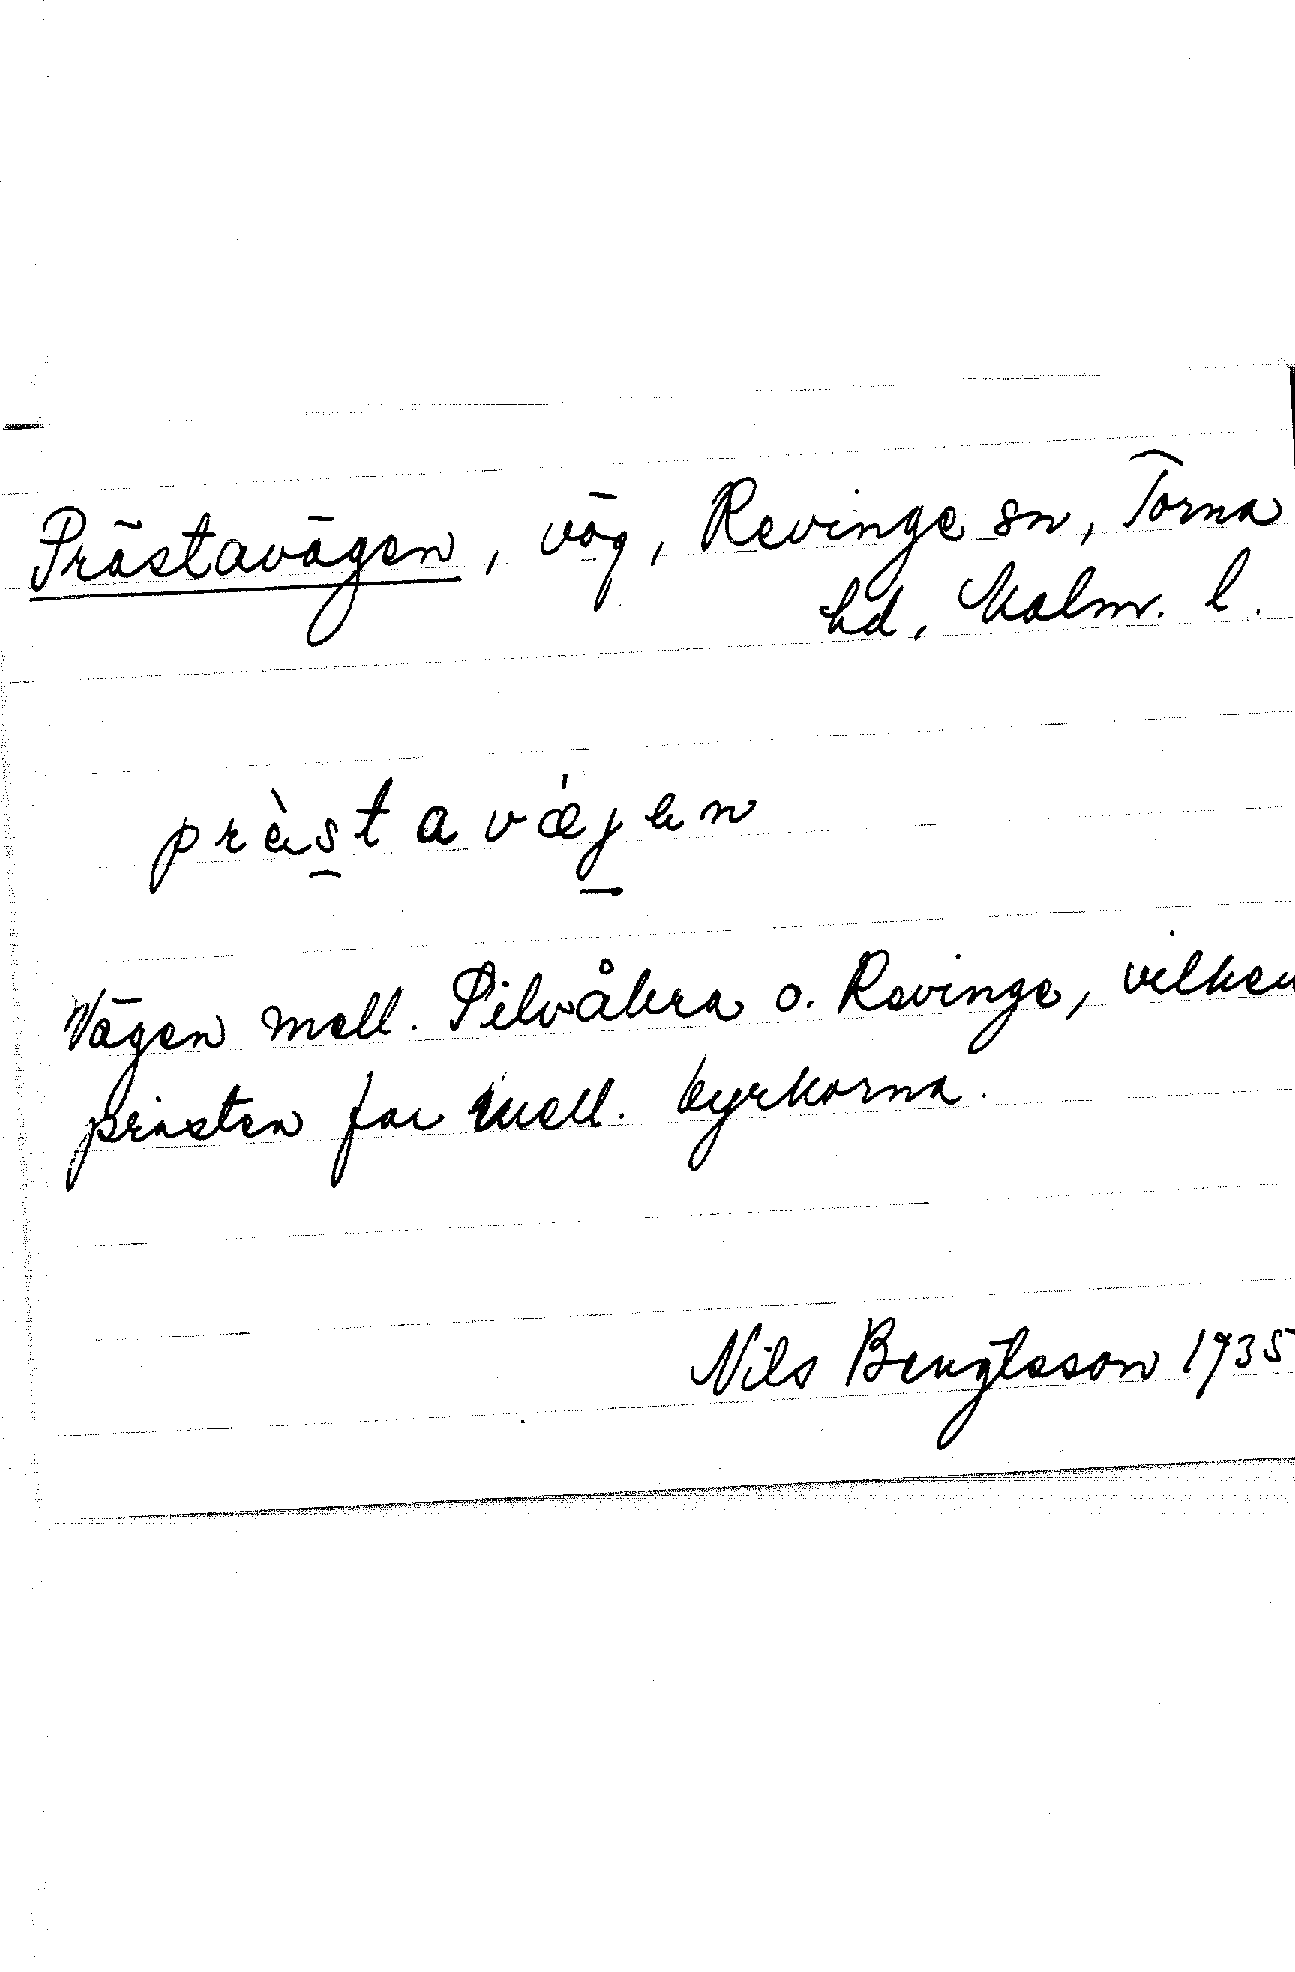 Prästavägen, väg, Revinge sn, Torna
hd, Malm. l.
præ̀stavǽjen
Vägen mell. Silvåkra o. Revinge, vilken
prästen far mell. kyrkorna.
Nils Bengtsson 1935